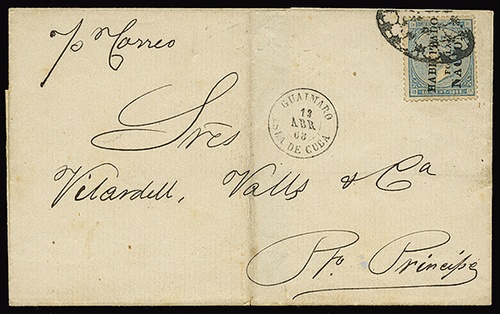 p. Correo
HABILITADO
POR LA
NACION
GUAIMARO
12
ABR.
68
ISLA DE CUBA
Sres
Vilardell, Valls & Ca
Pto. Principe